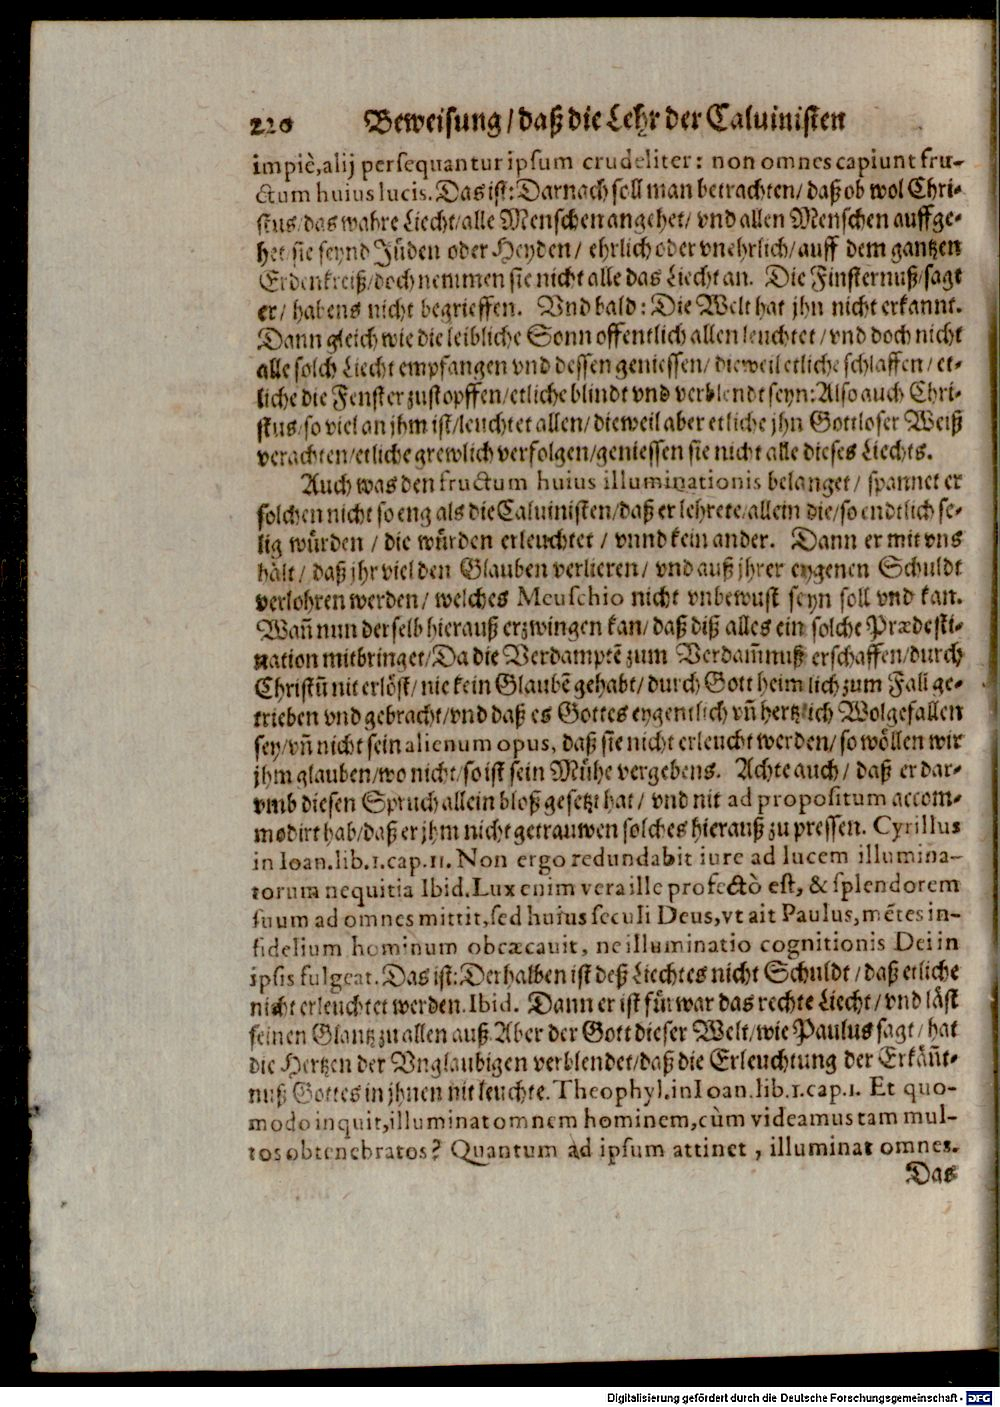 220 Beweisung / daß die Lehr der Caluinisten
impiè, alij persequantur ipsum crudeliter: non omnes capiunt fru-
ctum huius lucis. Das ist: Darnach soll man betrachten / daß ob wol Chri-
stus / das wahre Liecht / alle Menschen angehet / vnd allen Menschen auffge-
het / sie seynd Jüden oder Heyden / ehrlich oder vnehrlich / auff dem gantzen
Erdenkreiß / doch nemmen sie nicht alle das Liecht an. Die Finsternuß / sagt
er / habens nicht begrieffen. Vnd bald: Die Welt hat jhn nicht erkannt.
Dann gleich wie die leibliche Sonn offentlich allen leuchtet / vnd doch nicht
alle solch Liecht empfangen vnd dessen geniessen / dieweil etliche schlaffen / et-
liche die Fenster zustopffen / etliche blindt vnd verblendt seyn: Also auch Chri-
stus / so viel an jhm ist / leuchtet allen / dieweil aber etliche jhn Gottloser Weiß
verachten / etliche grewlich verfolgen / geniessen sie nicht alle dieses Liechts.
Auch was den fructum huius illuminationis belanget / spannet er
solchen nicht so eng als die Caluinisten / daß er lehrete / allein die / so endtlich se-
lig würden / die würden erleuchtet / vnnd kein ander. Dann er mit vns
hält / daß jhr viel den Glauben verlieren / vnd auß jhrer eygenen Schuldt
verlohren werden / welches Meuschio nicht vnbewust seyn soll vnd kan.
Wañ nun derselb hierauß erzwingen kan / daß diß alles ein solche Prædesti-
nation mitbringet / Da die Verdamptẽ zum Verdam̃nuß erschaffen / durch
Christũ nit erlöst / nie kein Glaubẽ gehabt / durch Gott heimlich zum Fall ge-
trieben vnd gebracht / vnd daß es Gottes eygentlich vñ hertzlich Wolgefallen
sey / vñ nicht sein alienum opus, daß sie nicht erleucht werden / so wöllen wir
jhm glauben / wo nicht / so ist sein Mühe vergebens. Achte auch / daß er dar-
vmb diesen Spruch allein bloß gesetzt hat / vnd nit ad propositum accom-
modirt hab / daß er jhm nicht getrauwen solches hierauß zu pressen. Cyrillus
in Ioan. lib. 1. cap. 11. Non ergo redundabit iure ad lucem illumina-
torum nequitia Ibid. Lux enim vera ille profectò est, & splendorem
suum ad omnes mittit, sed huius seculi Deus, vt ait Paulus, mẽtes in-
fidelium hominum obcæcauit, ne illuminatio cognitionis Dei in
ipsis fulgeat. Das ist: Derhalben ist deß Liechtes nicht Schuldt / daß etliche
nicht erleuchtet werden. Ibid. Dann er ist fürwar das rechte Liecht / vnd läst
seinen Glantz zu allen auß. Aber der Gott dieser Welt / wie Paulus sagt / hat
die Hertzen der Vnglaubigen verblendet / daß die Erleuchtung der Erkäñt-
nuß Gottes in jhnen nit leuchte. Theophyl. in Ioan. lib. 1. cap. 1. Et quo-
modo inquit, illuminat omnem hominem, cùm videamus tam mul-
tos obtenebratos? Quantum ad ipsum attinet, illuminat omnes.
Das
Digitalisierung gefördert durch die Deutsche Forschungsgemeinschaft - DFG